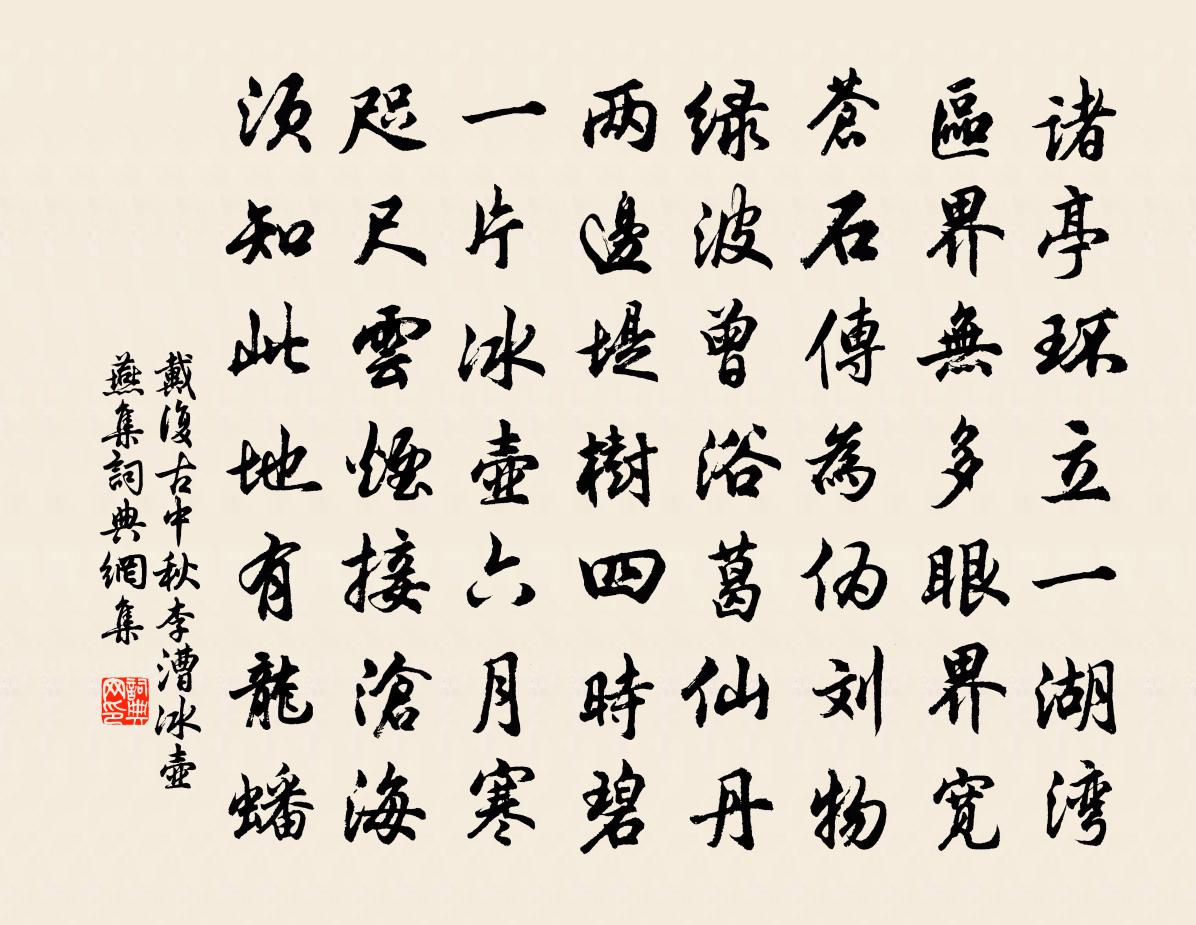 诸亭环立一湖湾
區界無多眼界寬
蒼石傳為伪刘物
绿波曾浴葛仙丹
两邊堤樹四時碧
一片冰壺六月寒
咫尺雲煙接滄海
须知此地有龍蟠
戴復古中秋李漕冰壺
燕集詞典網集
詞典网印